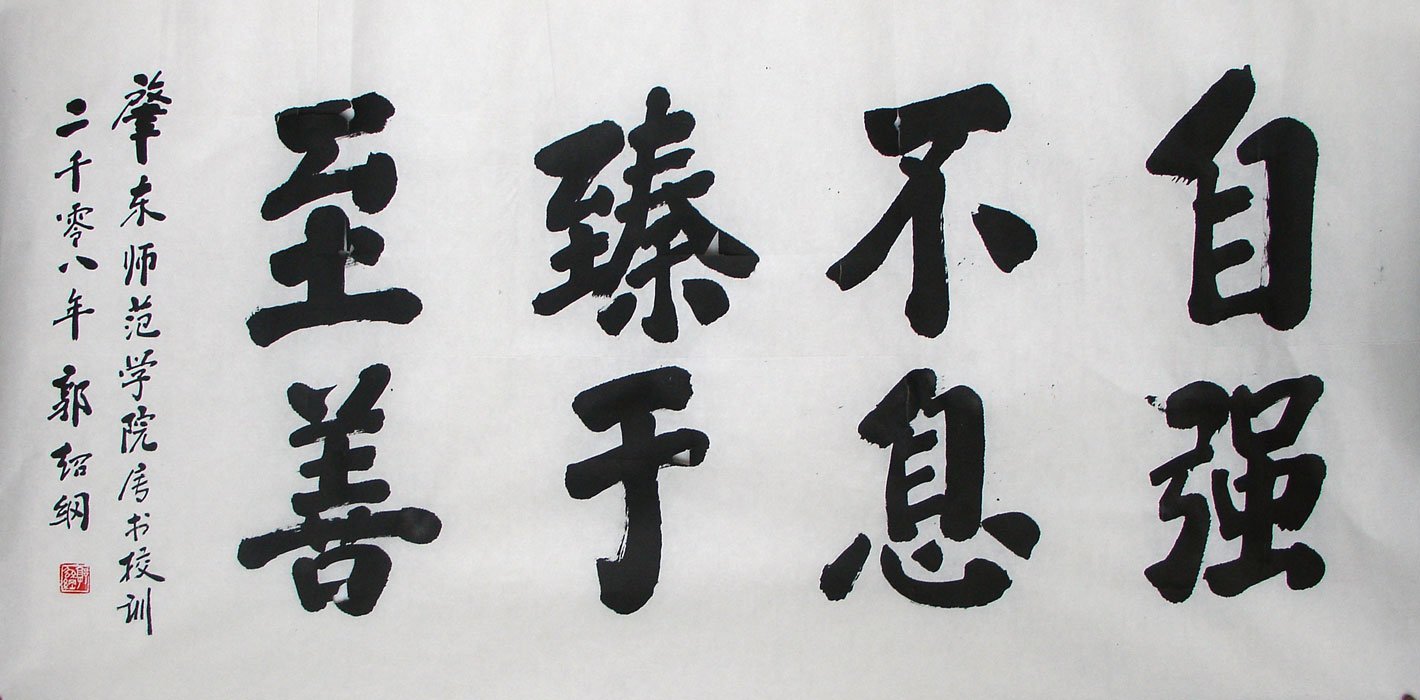 自强
不息
臻于
至善
肇东师范学院属书校训
二千零八年 郭绍纲